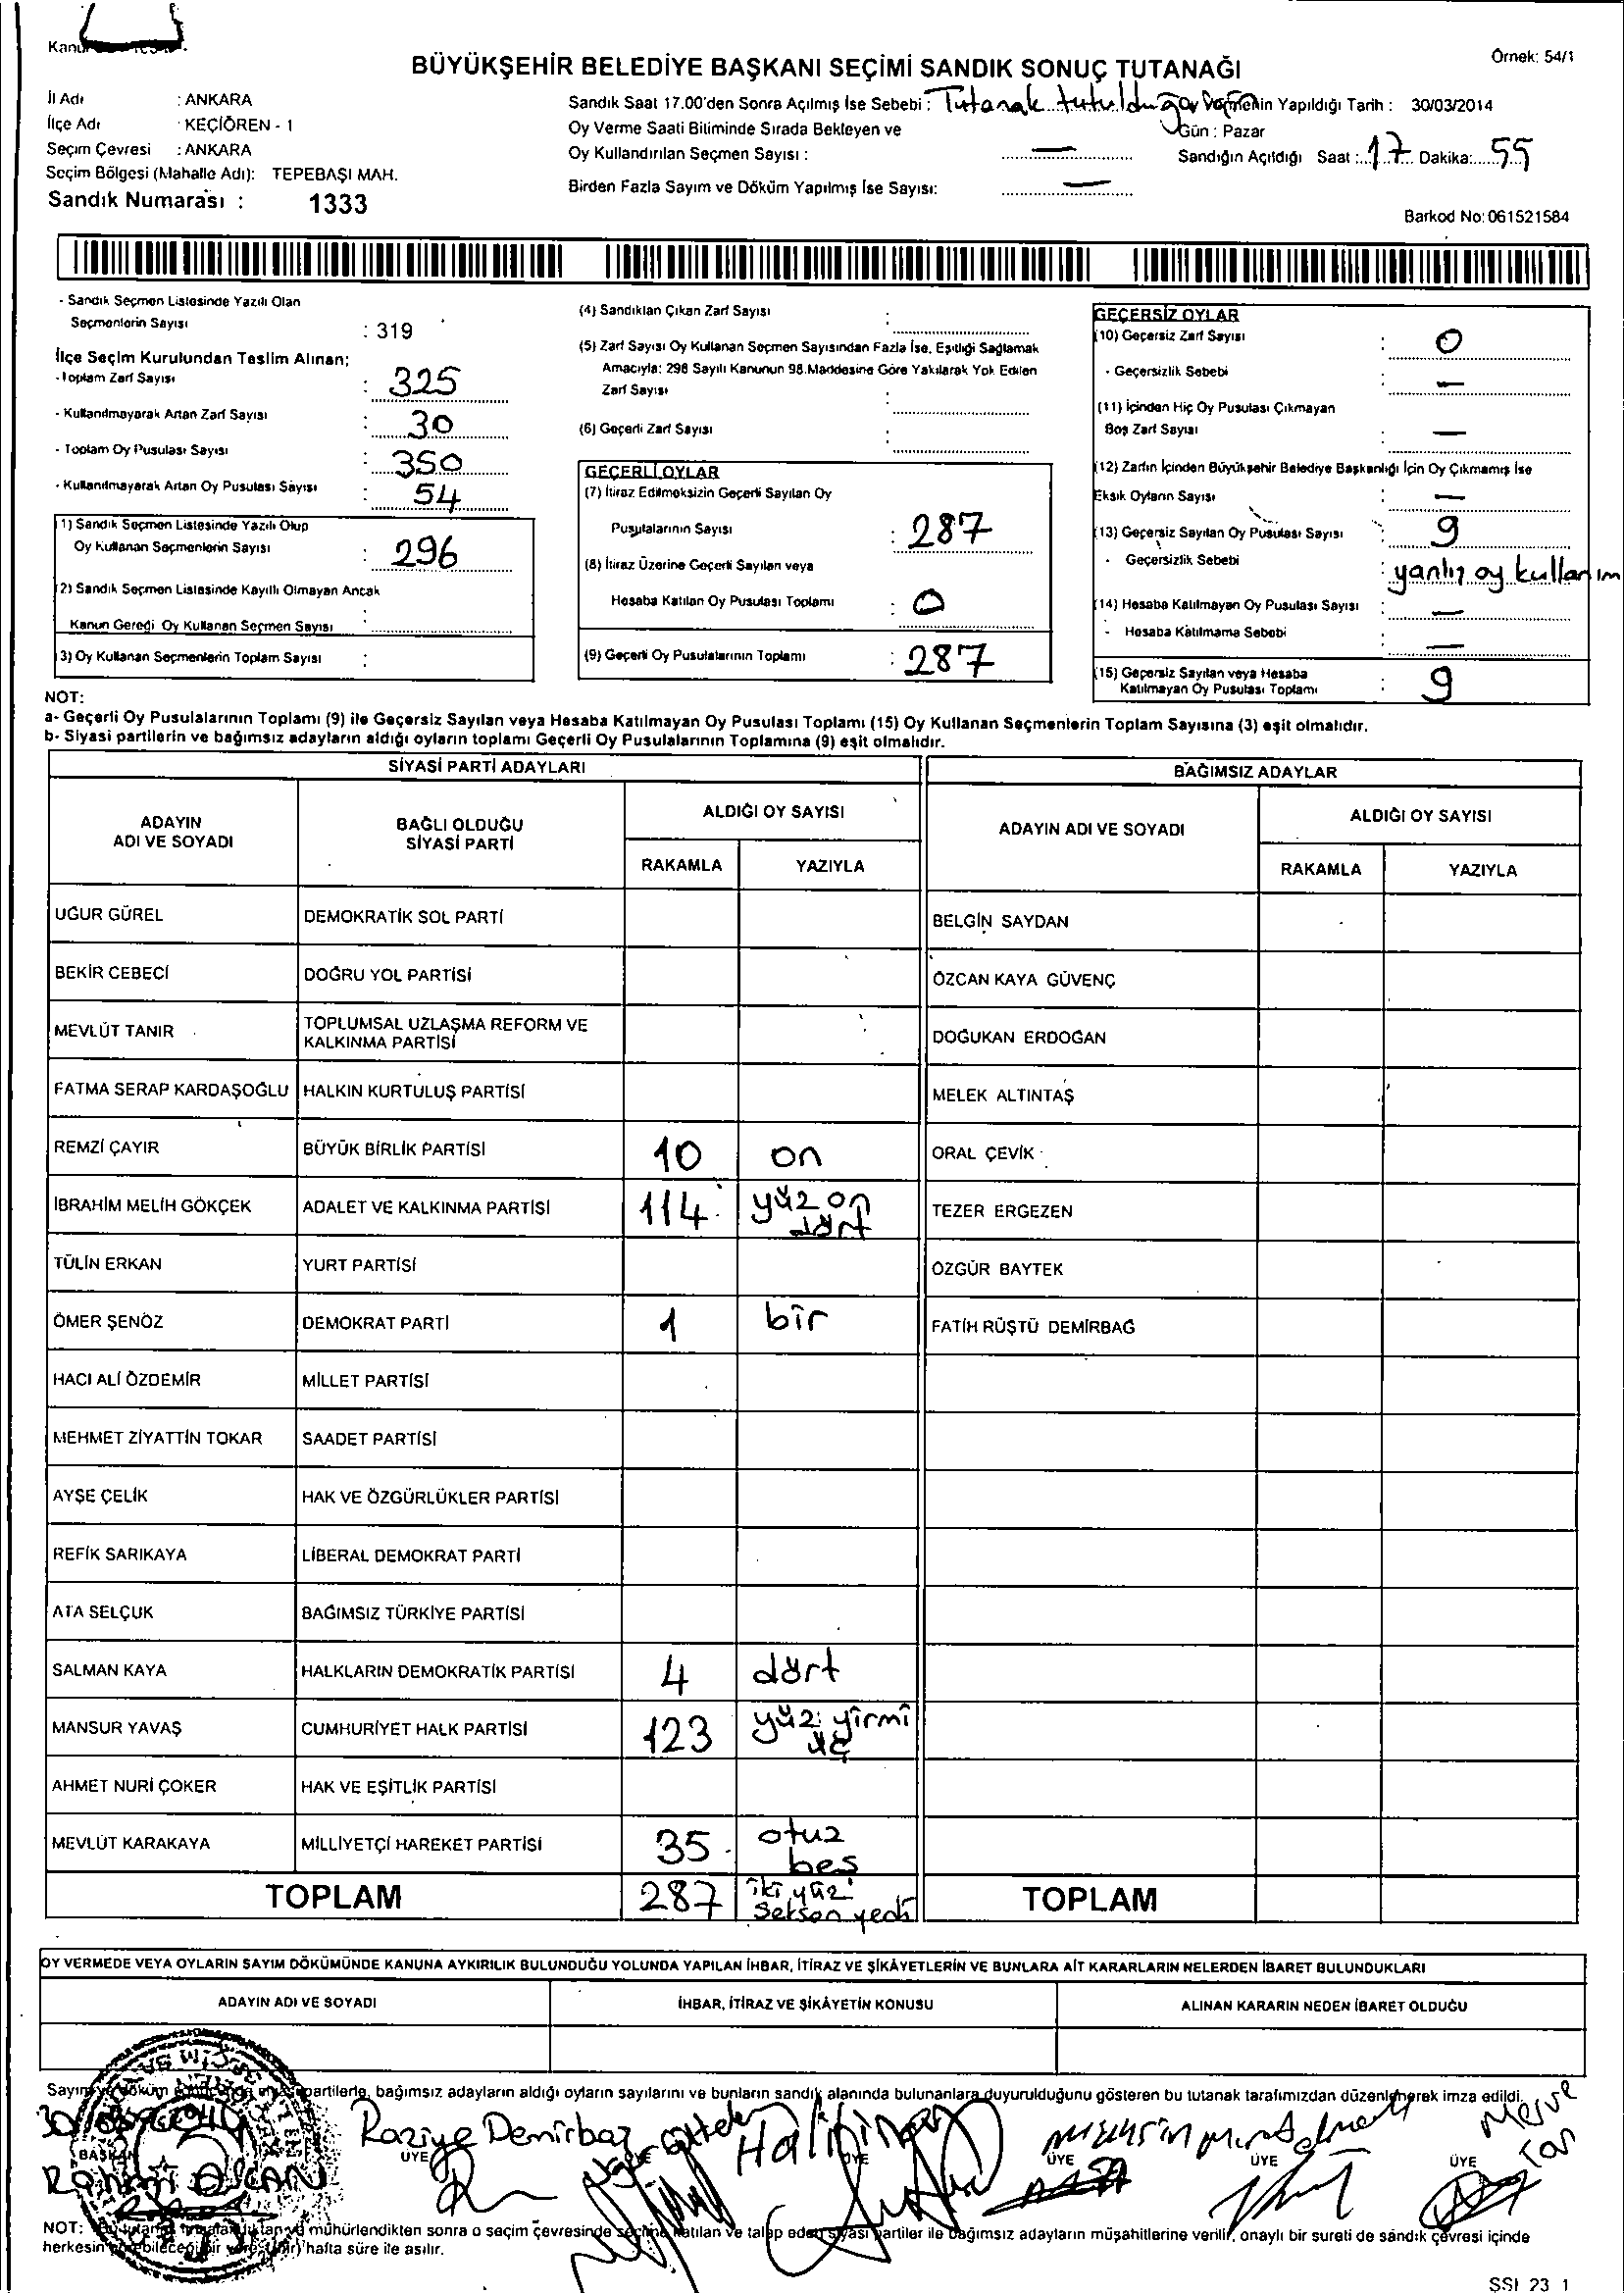 Örnek: 54/1
BÜYÜKŞEHİR BELEDİYE BAŞKANI SEÇİMİ SANDIK SONUÇ TUTANAĞI
İl Adı : ANKARA
İlçe Adı : KEÇİÖREN - 1
Seçim Çevresi : ANKARA
Seçim Bölgesi (Mahalle Adı): TEPEBAŞI MAH.
Sandık Numarası : 1333
Sandık Saat 17.00'den Sonra Açılmış İse Sebebi : Tutanak
Oy Verme Saati Bitiminde Sırada Bekleyen ve
Oy Kullandırılan Seçmen Sayısı : —
Birden Fazla Sayım ve Döküm Yapılmış İse Sayısı: —
Yapıldığı Tarih : 30/03/2014
Gün : Pazar
Sandığın Açıldığı Saat : 17 Dakika: 55
Barkod No: 061521584
- Sandık Seçmen Listesinde Yazılı Olan
Seçmenlerin Sayısı : 319
İlçe Seçim Kurulundan Teslim Alınan;
- Toplam Zarf Sayısı : 325
- Kullanılmayarak Artan Zarf Sayısı : 30
- Toplam Oy Pusulası Sayısı : 350
- Kullanılmayarak Artan Oy Pusulası Sayısı : 54
(1) Sandık Seçmen Listesinde Yazılı Olup
Oy Kullanan Seçmenlerin Sayısı : 296
(2) Sandık Seçmen Listesinde Kayıtlı Olmayan Ancak
Kanun Gereği Oy Kullanan Seçmen Sayısı :
(3) Oy Kullanan Seçmenlerin Toplam Sayısı :
(4) Sandıktan Çıkan Zarf Sayısı :
(5) Zarf Sayısı Oy Kullanan Seçmen Sayısından Fazla İse, Eşitliği Sağlamak
Amacıyla: 298 Sayılı Kanunun 98.Maddesine Göre Yakılarak Yok Edilen
Zarf Sayısı :
(6) Geçerli Zarf Sayısı :
GEÇERLİ OYLAR
(7) İtiraz Edilmeksizin Geçerli Sayılan Oy
Pusulalarının Sayısı : 287
(8) İtiraz Üzerine Geçerli Sayılan veya
Hesaba Katılan Oy Pusulası Toplamı : 0
(9) Geçerli Oy Pusulalarının Toplamı : 287
GEÇERSİZ OYLAR
(10) Geçersiz Zarf Sayısı : 0
- Geçersizlik Sebebi : —
(11) İçinden Hiç Oy Pusulası Çıkmayan
Boş Zarf Sayısı : —
(12) Zarfın İçinden Büyükşehir Belediye Başkanlığı İçin Oy Çıkmamış İse
Eksik Oyların Sayısı : —
(13) Geçersiz Sayılan Oy Pusulası Sayısı : 9
- Geçersizlik Sebebi : yanlış oy kullanım
(14) Hesaba Katılmayan Oy Pusulası Sayısı : —
- Hesaba Katılmama Sebebi : —
(15) Geçersiz Sayılan veya Hesaba
Katılmayan Oy Pusulası Toplamı : 9
NOT:
a- Geçerli Oy Pusulalarının Toplamı (9) ile Geçersiz Sayılan veya Hesaba Katılmayan Oy Pusulası Toplamı (15) Oy Kullanan Seçmenlerin Toplam Sayısına (3) eşit olmalıdır.
b- Siyasi partilerin ve bağımsız adayların aldığı oyların toplamı Geçerli Oy Pusulalarının Toplamına (9) eşit olmalıdır.
SİYASİ PARTİ ADAYLARI
ADAYIN ADI VE SOYADI BAĞLI OLDUĞU SİYASİ PARTİ ALDIĞI OY SAYISI
RAKAMLA YAZIYLA
UĞUR GÜREL DEMOKRATİK SOL PARTİ
BEKİR CEBECİ DOĞRU YOL PARTİSİ
MEVLÜT TANIR TOPLUMSAL UZLAŞMA REFORM VE KALKINMA PARTİSİ
FATMA SERAP KARDAŞOĞLU HALKIN KURTULUŞ PARTİSİ
REMZİ ÇAYIR BÜYÜK BİRLİK PARTİSİ 10 on
İBRAHİM MELİH GÖKÇEK ADALET VE KALKINMA PARTİSİ 114 yüz on dört
TÜLİN ERKAN YURT PARTİSİ
ÖMER ŞENÖZ DEMOKRAT PARTİ 1 bir
HACI ALİ ÖZDEMİR MİLLET PARTİSİ
MEHMET ZİYATTİN TOKAR SAADET PARTİSİ
AYŞE ÇELİK HAK VE ÖZGÜRLÜKLER PARTİSİ
REFİK SARIKAYA LİBERAL DEMOKRAT PARTİ
ATA SELÇUK BAĞIMSIZ TÜRKİYE PARTİSİ
SALMAN KAYA HALKLARIN DEMOKRATİK PARTİSİ 4 dört
MANSUR YAVAŞ CUMHURİYET HALK PARTİSİ 123 yüz yirmi üç
AHMET NURİ ÇOKER HAK VE EŞİTLİK PARTİSİ
MEVLÜT KARAKAYA MİLLİYETÇİ HAREKET PARTİSİ 35 otuz beş
TOPLAM 287 iki yüz seksen yedi
BAĞIMSIZ ADAYLAR
ADAYIN ADI VE SOYADI ALDIĞI OY SAYISI
RAKAMLA YAZIYLA
BELGİN SAYDAN
ÖZCAN KAYA GÜVENÇ
DOĞUKAN ERDOĞAN
MELEK ALTINTAŞ
ORAL ÇEVİK
TEZER ERGEZEN
ÖZGÜR BAYTEK
FATİH RÜŞTÜ DEMİRBAĞ
TOPLAM
OY VERMEDE VEYA OYLARIN SAYIM DÖKÜMÜNDE KANUNA AYKIRILIK BULUNDUĞU YOLUNDA YAPILAN İHBAR, İTİRAZ VE ŞİKÂYETLERİN VE BUNLARA AİT KARARLARIN NELERDEN İBARET BULUNDUKLARI
ADAYIN ADI VE SOYADI İHBAR, İTİRAZ VE ŞİKÂYETİN KONUSU ALINAN KARARIN NEDEN İBARET OLDUĞU
partilerle, bağımsız adayların aldığı oyların sayılarını ve bunların sandık alanında bulunanlara duyurulduğunu gösteren bu tutanak tarafımızdan düzenlenerek imza edildi.
Raziye Demirbaz
Merve
Tan
ÜYE ÜYE ÜYE ÜYE
NOT: mühürlendikten sonra o seçim çevresinde seçime katılan ve talep eden siyasi partiler ile bağımsız adayların müşahitlerine verilir, onaylı bir sureti de sandık çevresi içinde
herkesin hafta süre ile asılır.
SSI_23_1